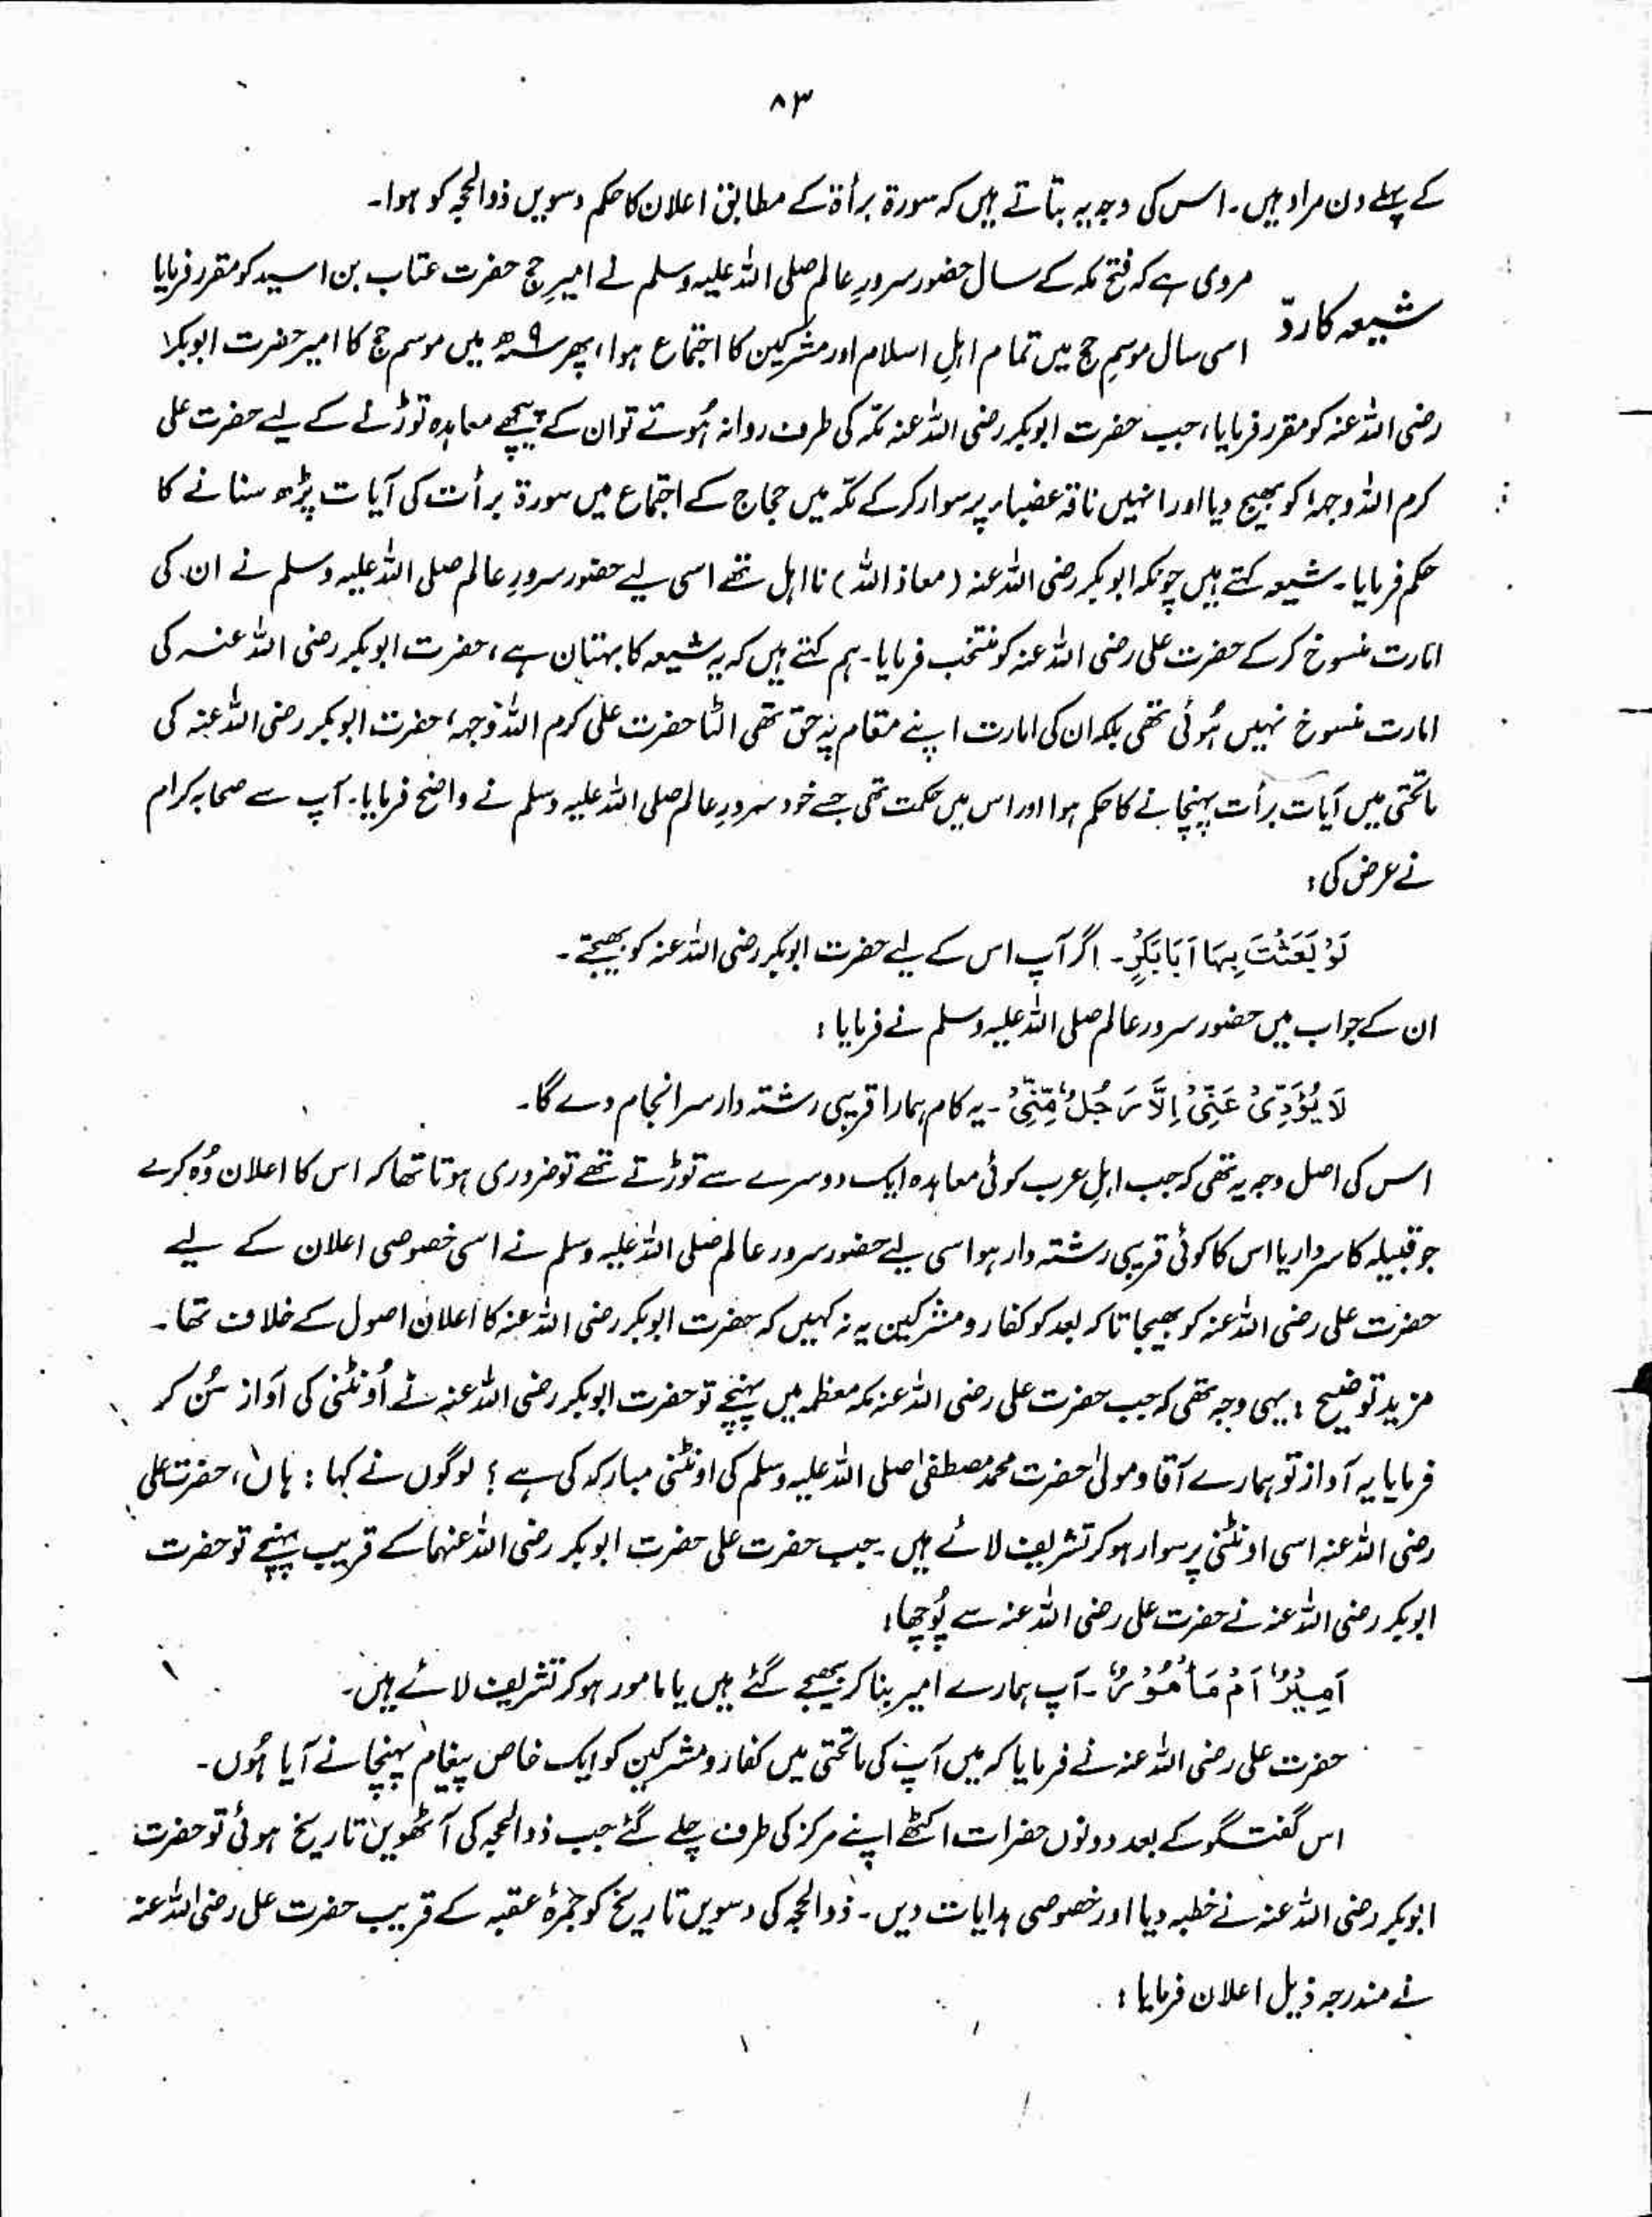 ۸۳
کے پہلے دن مراد ہیں۔ اس کی وجہ یہ بتاتے ہیں کہ سورۃ برأۃ کے مطابق اعلان کا حکم دسویں ذوالحجہ کو ہوا۔
شیعہ کا ردّ
مروی ہے کہ فتح مکہ کے سال حضور سرورِ عالم صلی اللہ علیہ وسلم نے امیرِ حج حضرت عتاب بن اسید کو مقرر فرمایا
اسی سال موسمِ حج میں تمام اہلِ اسلام اور مشرکین کا اجتماع ہوا، پھر ۹ سنہ ھ میں موسم حج کا امیر حضرت ابوبکر
رضی اللہ عنہ کو مقرر فرمایا، جب حضرت ابوبکر رضی اللہ عنہ مکّہ کی طرف روانہ ہُوئے تو ان کے پیچھے معاہدہ توڑنے کے لیے حضرت علی
کرم اللہ وجہہٗ کو بھیج دیا اور انہیں ناقہ عضباء پر سوار کر کے مکّہ میں حجاج کے اجتماع میں سورۃ برأت کی آیات پڑھ سنانے کا
حکم فرمایا۔ شیعہ کہتے ہیں چونکہ ابوبکر رضی اللہ عنہ (معاذ اللہ) نااہل تھے اسی لیے حضور سرورِ عالم صلی اللہ علیہ وسلم نے ان کی
امارت منسوخ کر کے حضرت علی رضی اللہ عنہ کو منتخب فرمایا۔ ہم کہتے ہیں کہ یہ شیعہ کا بہتان ہے، حضرت ابوبکر رضی اللہ عنہ کی
امارت منسوخ نہیں ہُوئی تھی بلکہ ان کی امارت اپنے مقام پہ حق تھی الٹا حضرت علی کرم اللہ وجہہٗ حضرت ابوبکر رضی اللہ عنہ کی
ماتحتی میں آیات برأت پہنچانے کا حکم ہوا اور اس میں حکمت تھی جسے خود سرورِ عالم صلی اللہ علیہ وسلم نے واضح فرمایا۔ آپ سے صحابہ کرام
نے عرض کی:
لَوْ بَعَثْتَ بِهَا اَبَا بَكْرٍ۔ اگر آپ اس کے لیے حضرت ابوبکر رضی اللہ عنہ کو بھیجتے۔
ان کے جواب میں حضور سرور عالم صلی اللہ علیہ وسلم نے فرمایا:
لَا يُؤَدِّىْ عَنِّىْ اِلَّا رَجُلٌ مِّنِّىْ۔ یہ کام ہمارا قریبی رشتہ دار سر انجام دے گا۔
اس کی اصل وجہ یہ تھی کہ جب اہلِ عرب کوئی معاہدہ ایک دوسرے سے توڑتے تھے تو ضروری ہوتا تھا کہ اس کا اعلان وُہ کرے
جو قبیلہ کا سردار یا اس کا کوئی قریبی رشتہ دار ہو اسی لیے حضور سرور عالم صلی اللہ علیہ وسلم نے اسی خصوصی اعلان کے لیے
حضرت علی رضی اللہ عنہ کو بھیجا تاکہ بعد کو کفار و مشرکین یہ نہ کہیں کہ حضرت ابوبکر رضی اللہ عنہ کا اعلان اصول کے خلاف تھا۔
مزید توضیح: یہی وجہ تھی کہ جب حضرت علی رضی اللہ عنہ مکہ معظمہ میں پہنچے تو حضرت ابوبکر رضی اللہ عنہ نے اُونٹنی کی آواز سُن کر
فرمایا یہ آواز تو ہمارے آقا و مولیٰ حضرت محمد مصطفیٰ صلی اللہ علیہ وسلم کی اونٹنی مبارکہ کی ہے؟ لوگوں نے کہا: ہاں، حضرت علی
رضی اللہ عنہ اسی اونٹنی پر سوار ہو کر تشریف لائے ہیں۔ جب حضرت علی حضرت ابوبکر رضی اللہ عنہما کے قریب پہنچے تو حضرت
ابوبکر رضی اللہ عنہ نے حضرت علی رضی اللہ عنہ سے پُوچھا:
اَمِيْرٌ اَمْ مَأْمُوْرٌ۔ آپ ہمارے امیر بنا کر بھیجے گئے ہیں یا مامور ہو کر تشریف لائے ہیں۔
حضرت علی رضی اللہ عنہ نے فرمایا کہ میں آپ کی ماتحتی میں کفار و مشرکین کو ایک خاص پیغام پہنچانے آیا ہُوں۔
اس گفتگو کے بعد دونوں حضرات اکٹھے اپنے مرکز کی طرف چلے گئے جب ذوالحجہ کی آٹھویں تاریخ ہوئی تو حضرت
ابوبکر رضی اللہ عنہ نے خطبہ دیا اور خصوصی ہدایات دیں۔ ذوالحجہ کی دسویں تاریخ کو جمرۂ عقبہ کے قریب حضرت علی رضی اللہ عنہ
نے مندرجہ ذیل اعلان فرمایا: